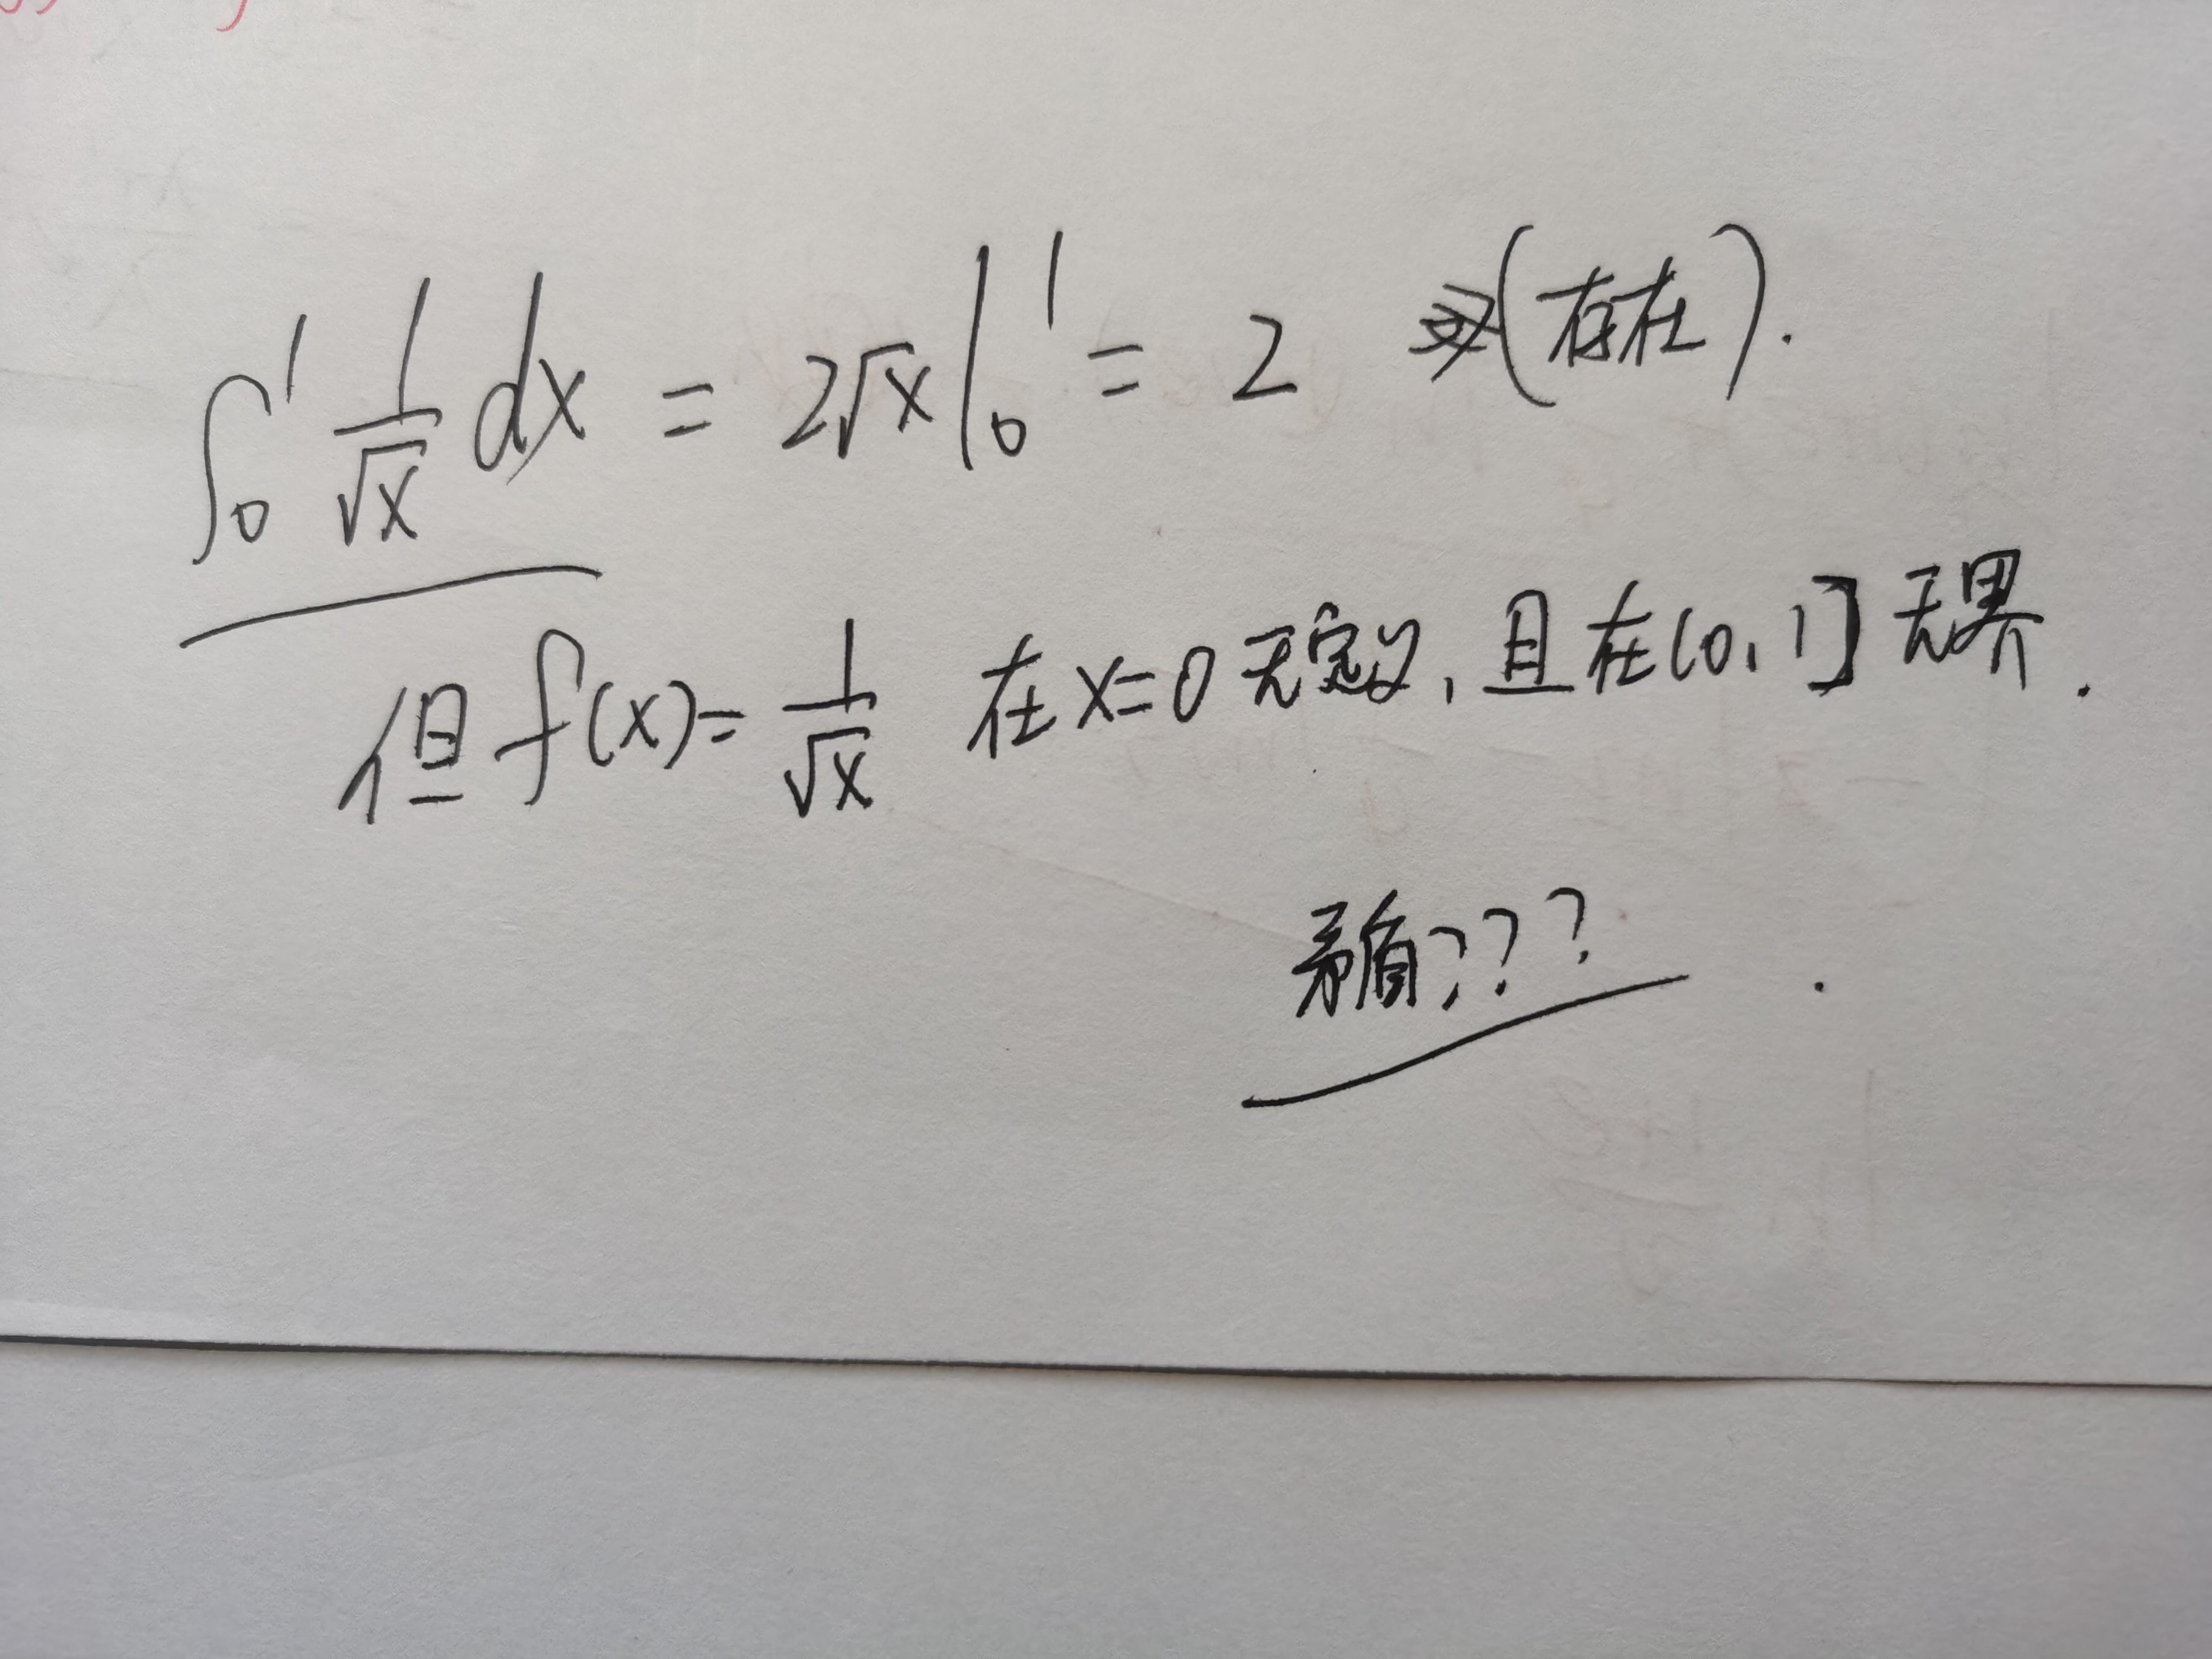 ∫₀¹ 1/√x dx = 2√x |₀¹ = 2 (存在).
但 f(x)= 1/√x 在 x=0 无定义, 且在(0,1] 无界.
矛盾???